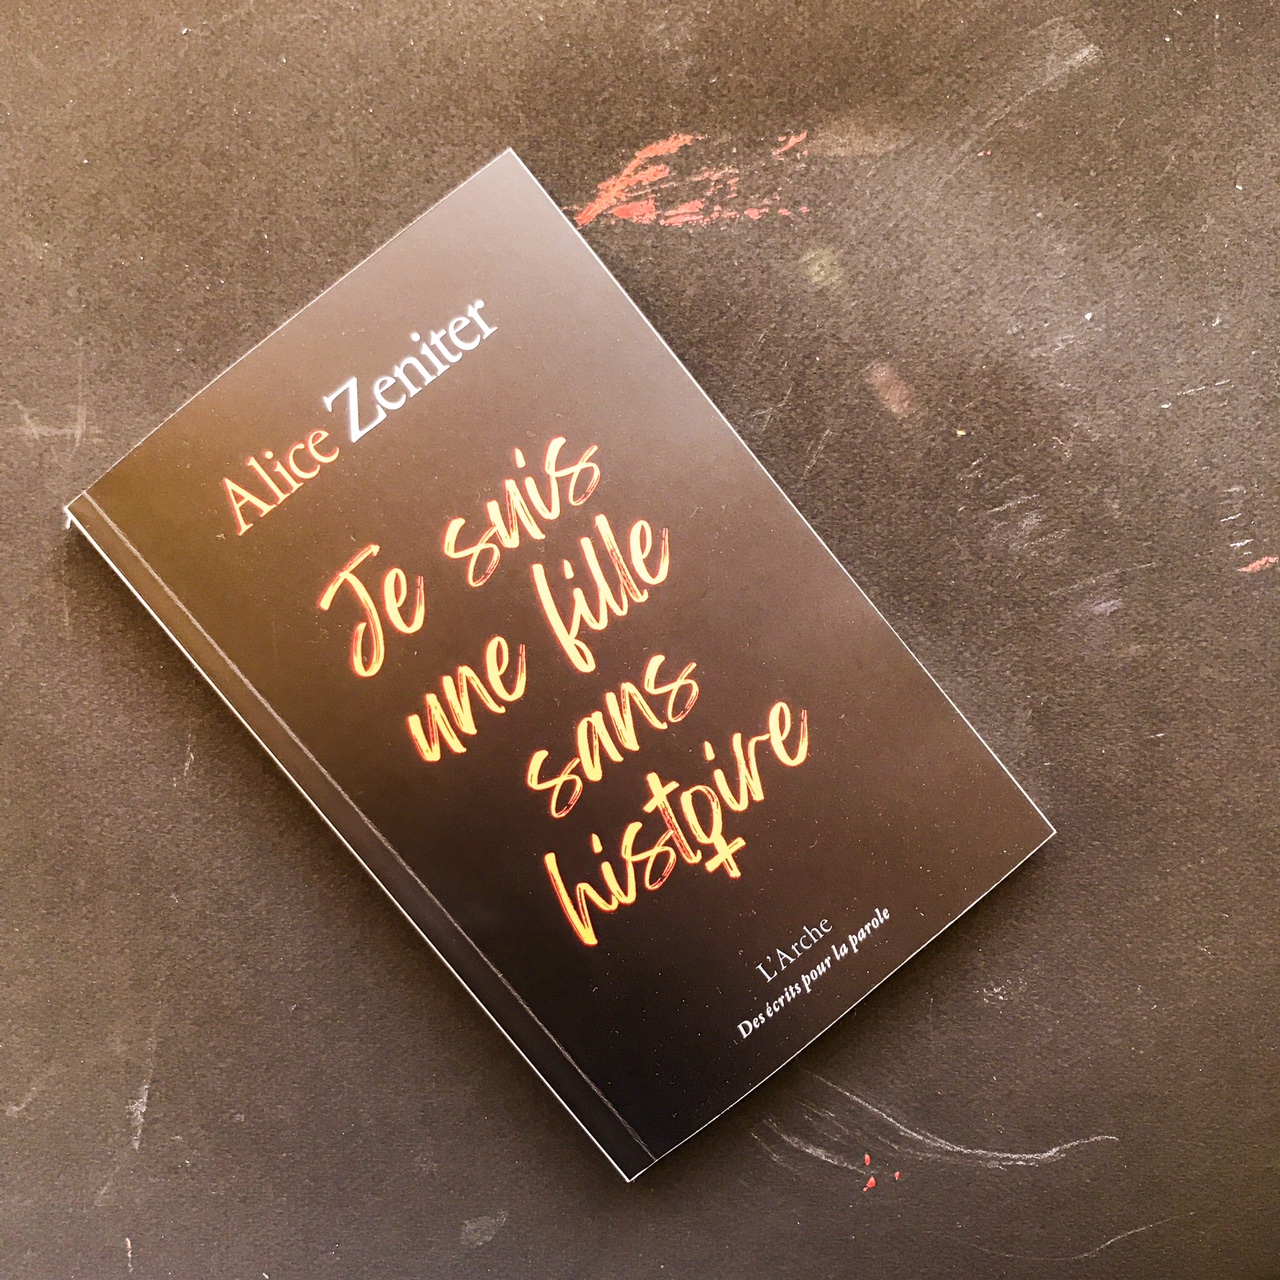 Alice Zeniter
Je suis
une fille
sans
histoire
L'Arche
Des écrits pour la parole